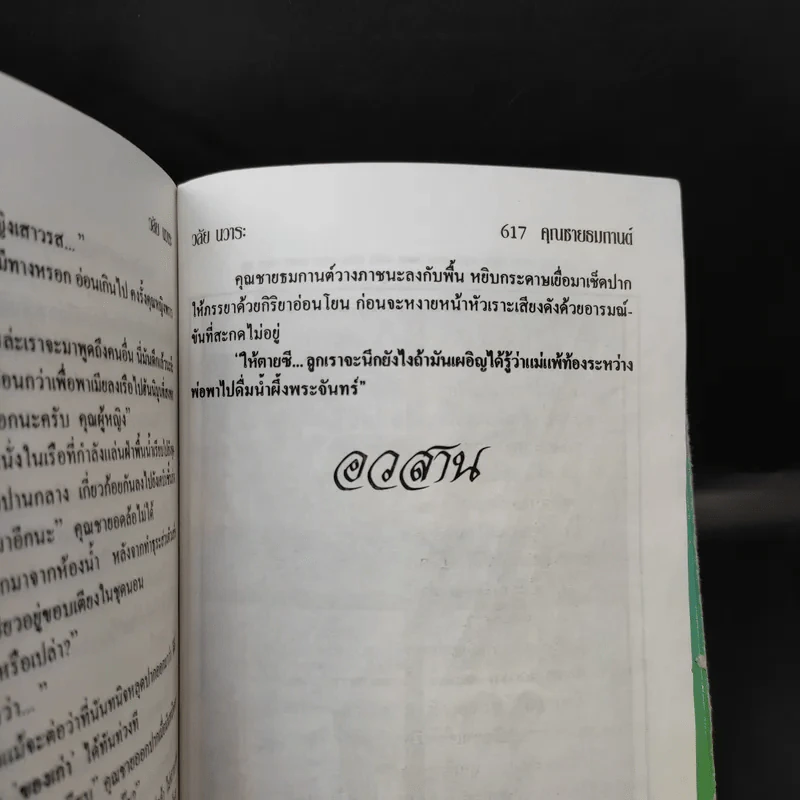 หญิงเสาวรส..."
มีทางหรอก อ่อนเกินไป
ล่ะเราจะมาพูดถึงคนอื่น
อนกว่าเพื่อพาเมียลงเรือไป
อกนะครับ คุณผู้หญิง"
นั่งในเรือที่กำลังแล่นฝ่าพื้นน้ำ
ปานกลาง เกี่ยวก้อยกันลงไป
อีกนะ" คุณชายอดล้อไม่ได้
กมาจากห้องน้ำ
ยวอยู่ขอบเตียงในชุดนอน
หรือเปล่า?"
ว่า..."
แม้จะต่อว่าที่นันทนิจหลุดปากออกมา
'ของเก่า' ได้ทันท่วงที
วลัย นวาระ
617 คุณชายธมกานต์
คุณชายธมกานต์วางภาชนะลงกับพื้น หยิบกระดาษเยื่อมาเช็ดปาก
ให้ภรรยาด้วยกิริยาอ่อนโยน ก่อนจะหงายหน้าหัวเราะเสียงดังด้วยอารมณ์-
ขันที่สะกดไม่อยู่
'ให้ตายซี... ลูกเราจะนึกยังไงถ้ามันเผอิญได้รู้ว่าแม่แพ้ท้องระหว่าง
พ่อพาไปดื่มน้ำผึ้งพระจันทร์"
อวสาน